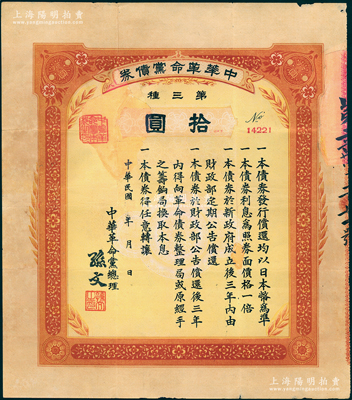 上海陽明拍賣
www.yangmingauction.com
中華革命黨債券
第三種
拾圓
No 14221
一本債券發行償還均以日本幣為準
一本債券利息為照券面價格一倍
一本債券於新政府成立後三年內由
財政部定期公告償還
一本債券於財政部公告償還後三年
內得向革命債券整理局或原經手
之籌餉局換取本息
一本債券得任意轉讓
中華民國 年 月 日
中華革命黨總理
孫文
上海陽明拍賣
www.yangmingauction.com